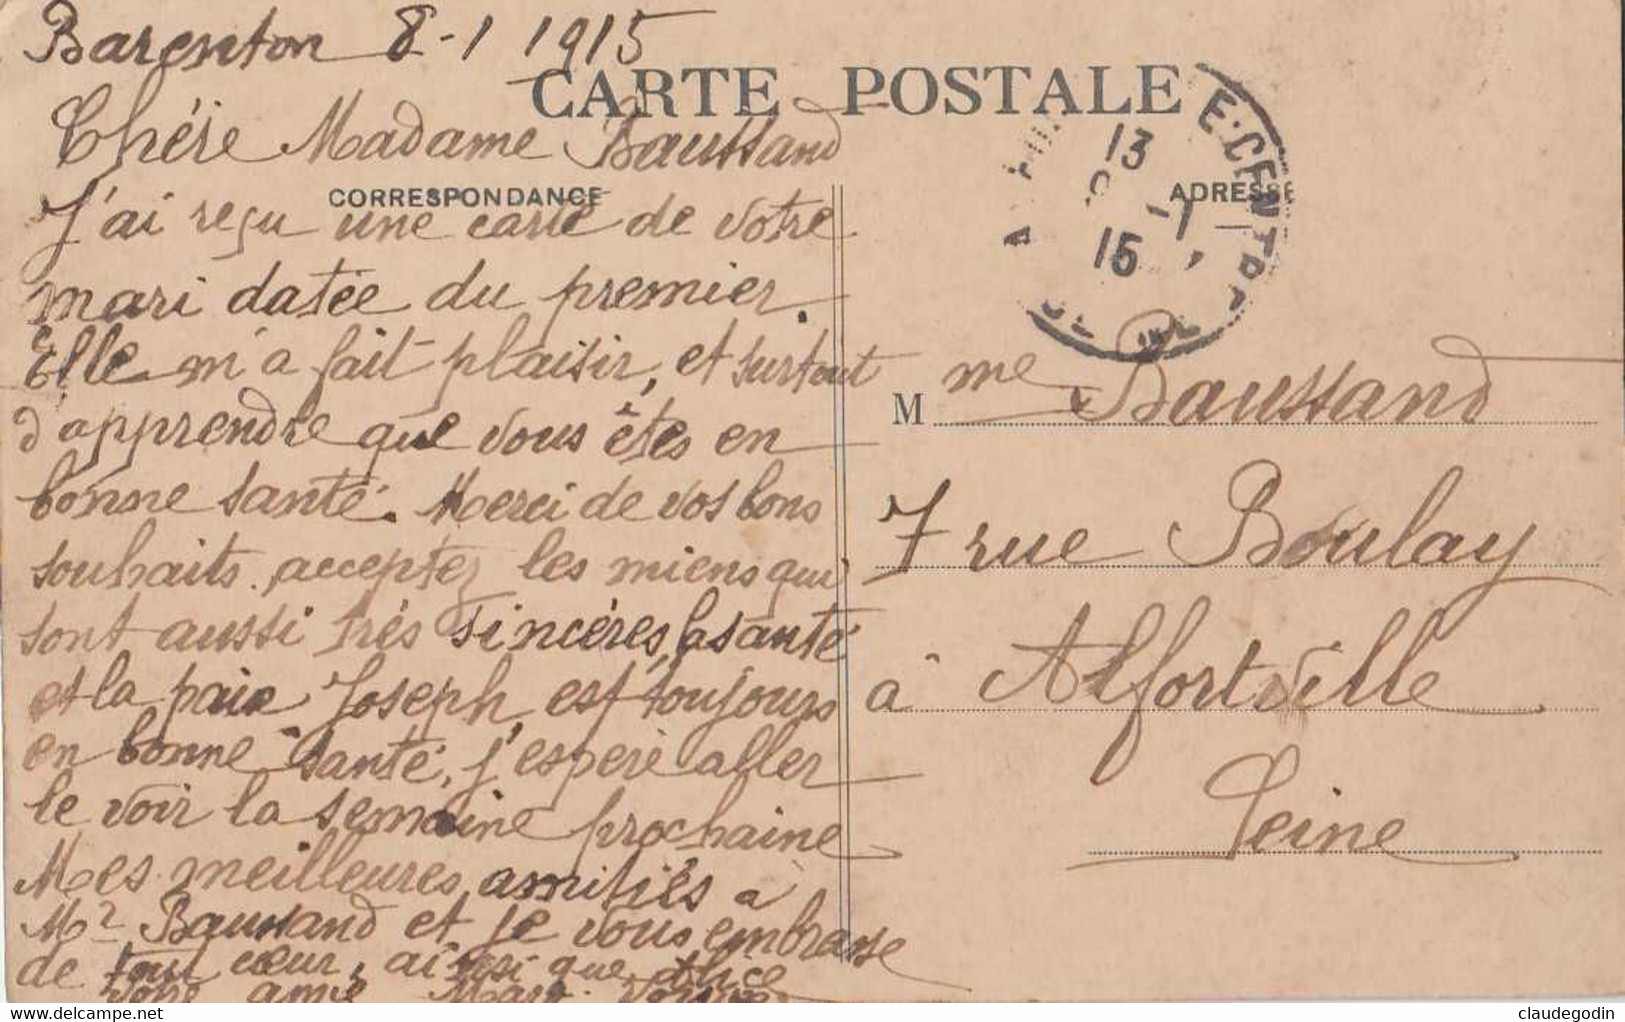 Barenton 8-1 1915
CARTE POSTALE
Chére Madame Baussand
CORRESPONDANCE
J'ai reçu une carte de votre
mari datée du premier.
Elle m'a fait plaisir, et surtout
d'apprendre que vous êtes en
bonne santé. Merci de vos bons
souhaits, acceptez les miens qui
sont aussi trés sincéres, la santé
et la paix. Joseph, est toujours
en bonne santé, j'espere aller
le voir la semaine prochaine
Mes meilleures amitiés à
Mr Baussand et je vous embrasse
de tout cœur, ainsi que Alice
Votre amie
13
8 -1
15
E. CENTR
ADRESSE
M me Baussand
7 rue Boulay
à Alfortville
Seine
www.delcampe.net
claudegodin